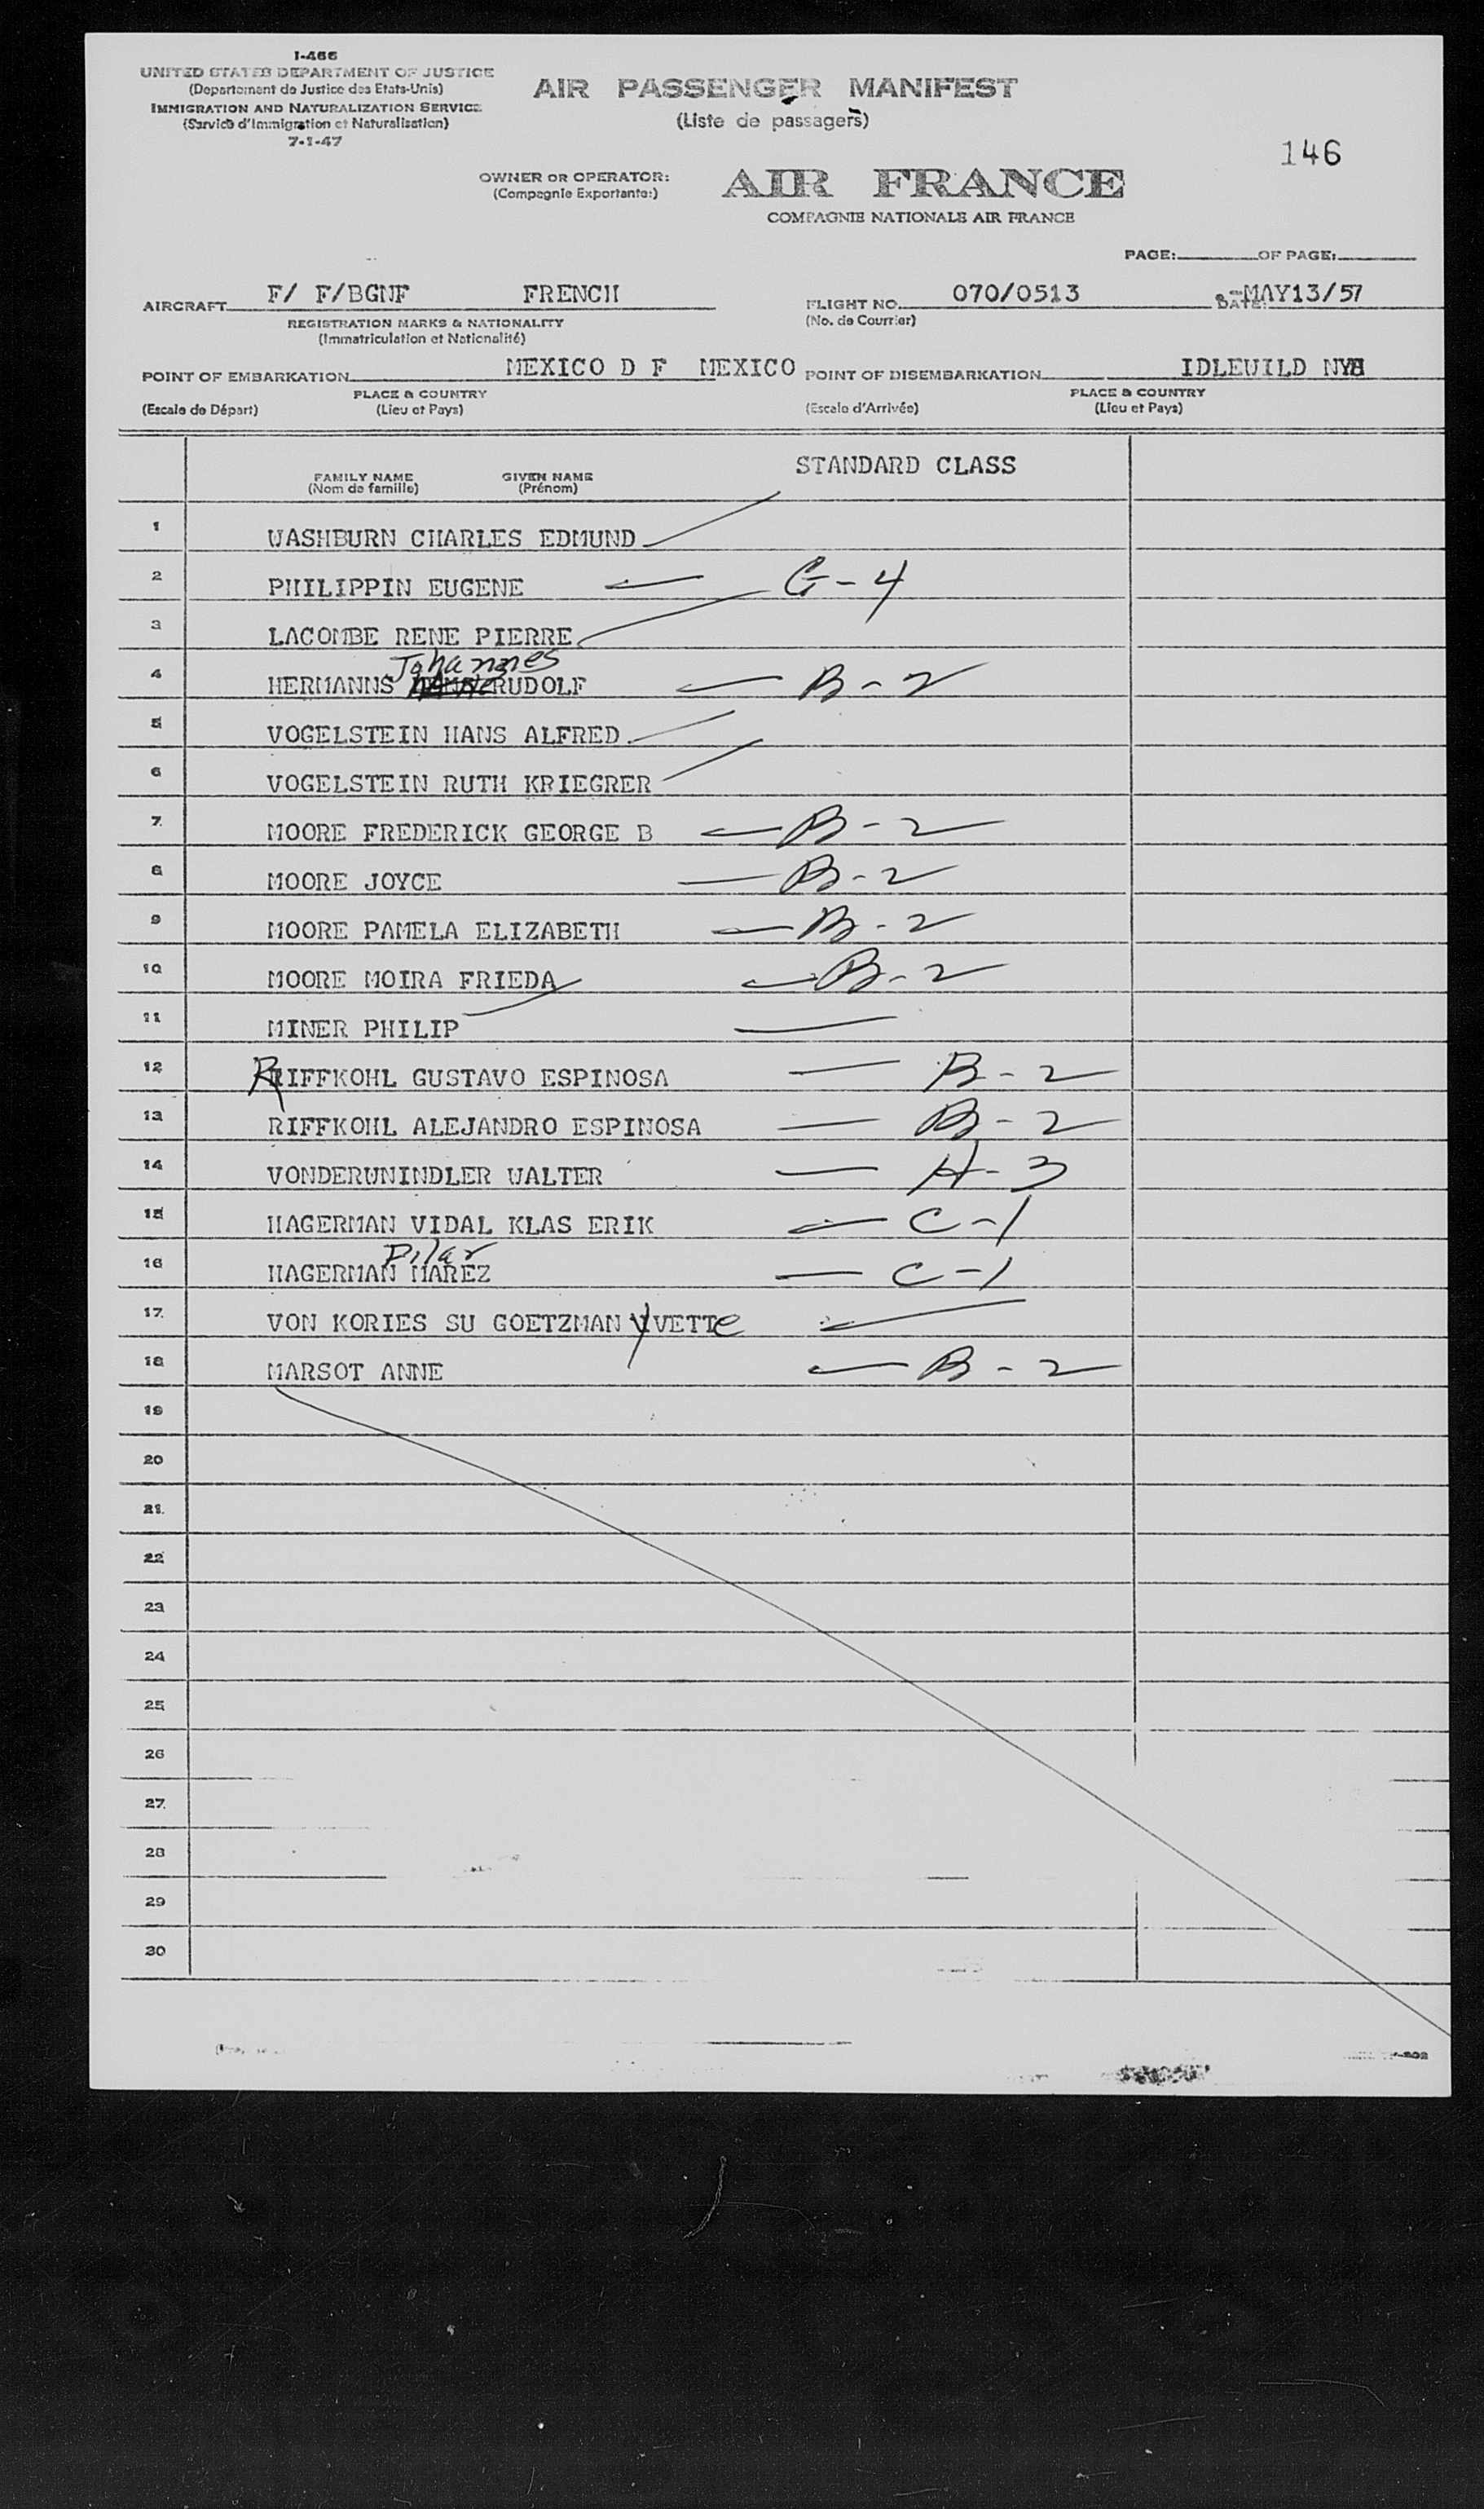 I-466
UNITED STATES DEPARTMENT OF JUSTICE
(Departement de Justice des Etats-Unis)
IMMIGRATION AND NATURALIZATION SERVICE
(Service d'Immigration et Naturalisation)
7-1-47
AIR PASSENGER MANIFEST
(Liste de passagers)
146
OWNER OR OPERATOR: AIR FRANCE
(Compagnie Exportante:)
COMPAGNIE NATIONALE AIR FRANCE
PAGE: OF PAGE:
AIRCRAFT F/ F/BGNF FRENCH FLIGHT NO. 070/0513 DATE: MAY13/57
REGISTRATION MARKS & NATIONALITY (No. de Courrier)
(Immatriculation et Nationalité)
POINT OF EMBARKATION MEXICO D F MEXICO POINT OF DISEMBARKATION IDLEWILD NY
PLACE & COUNTRY PLACE & COUNTRY
(Escale de Départ) (Lieu et Pays) (Escale d'Arrivée) (Lieu et Pays)
STANDARD CLASS
FAMILY NAME GIVEN NAME
(Nom de famille) (Prénom)
1 WASHBURN CHARLES EDMUND
2 PHILIPPIN EUGENE G-4
3 LACOMBE RENE PIERRE
Johannes
4 HERMANNS RUDOLF B-2
5 VOGELSTEIN HANS ALFRED
6 VOGELSTEIN RUTH KRIEGRER
7 MOORE FREDERICK GEORGE B B-2
8 MOORE JOYCE B-2
9 MOORE PAMELA ELIZABETH B-2
10 MOORE MOIRA FRIEDA B-2
11 MINER PHILIP
12 RIFFKOHL GUSTAVO ESPINOSA B-2
13 RIFFKOHL ALEJANDRO ESPINOSA B-2
14 VONDERWNINDLER WALTER H-3
15 HAGERMAN VIDAL KLAS ERIK C-1
Pilar
16 HAGERMAN MAREZ C-1
17 VON KORIES SU GOETZMAN YVETTe
18 MARSOT ANNE B-2
19
20
21
22
23
24
25
26
27
28
29
30